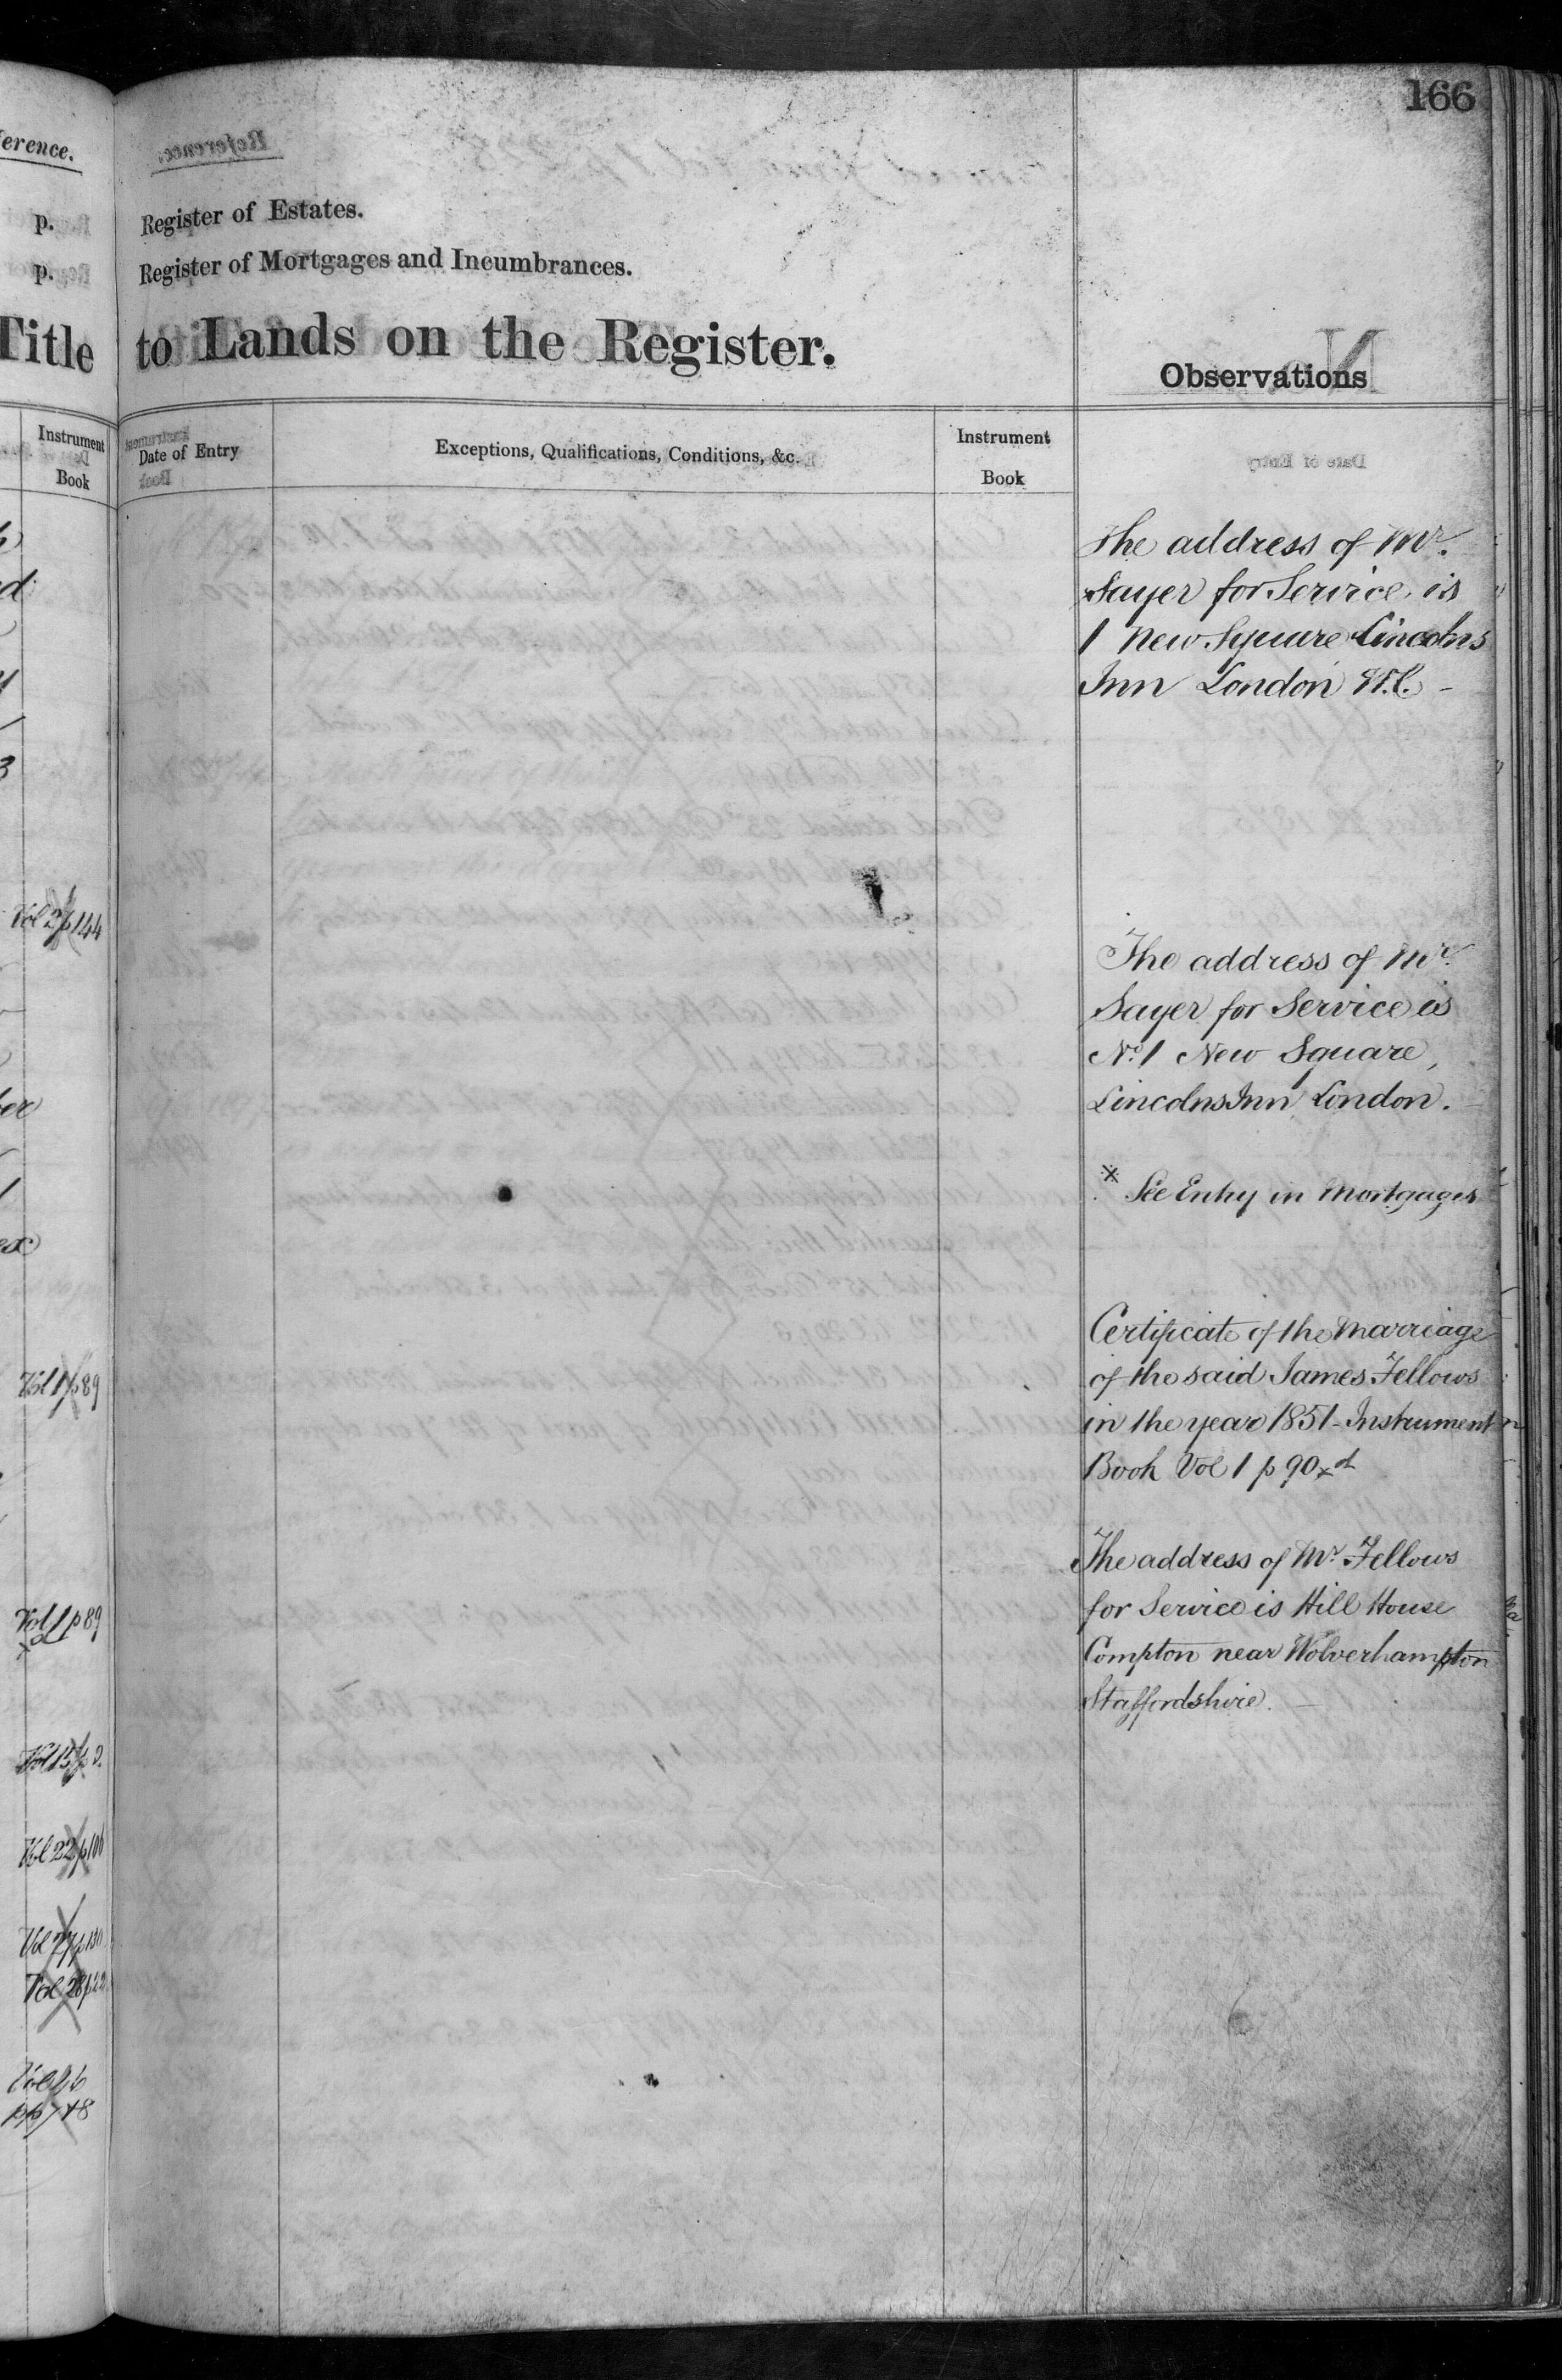 166
ference.
p.
p.
Title
Instrument
Book
Vol 2 p 144
Vol 1 p 89
Vol 1 p 89
Vol 15 p 2.
Vol 22 p 100
Vol 27 p
Vol 28 p 22
pp 7 + 8
Register of Estates.
Register of Mortgages and Incumbrances.
to Lands on the Register.
Observations
Date of Entry
Exceptions, Qualifications, Conditions, &c.
Instrument
Book
The address of Mr.
Sayer for Service is
1 New Square Lincolns
Inn London W.C. -
The address of Mr.
Sayer for Service is
No. 1 New Square,
Lincolns Inn London.
x See Entry in Mortgages
Certificate of the Marriage
of the said James Fellows
in the year 1851 - Instrument
Book Vol 1 p 90 x d
The address of Mr. Fellows
for Service is Hill House
Compton near Wolverhampton
Staffordshire. -